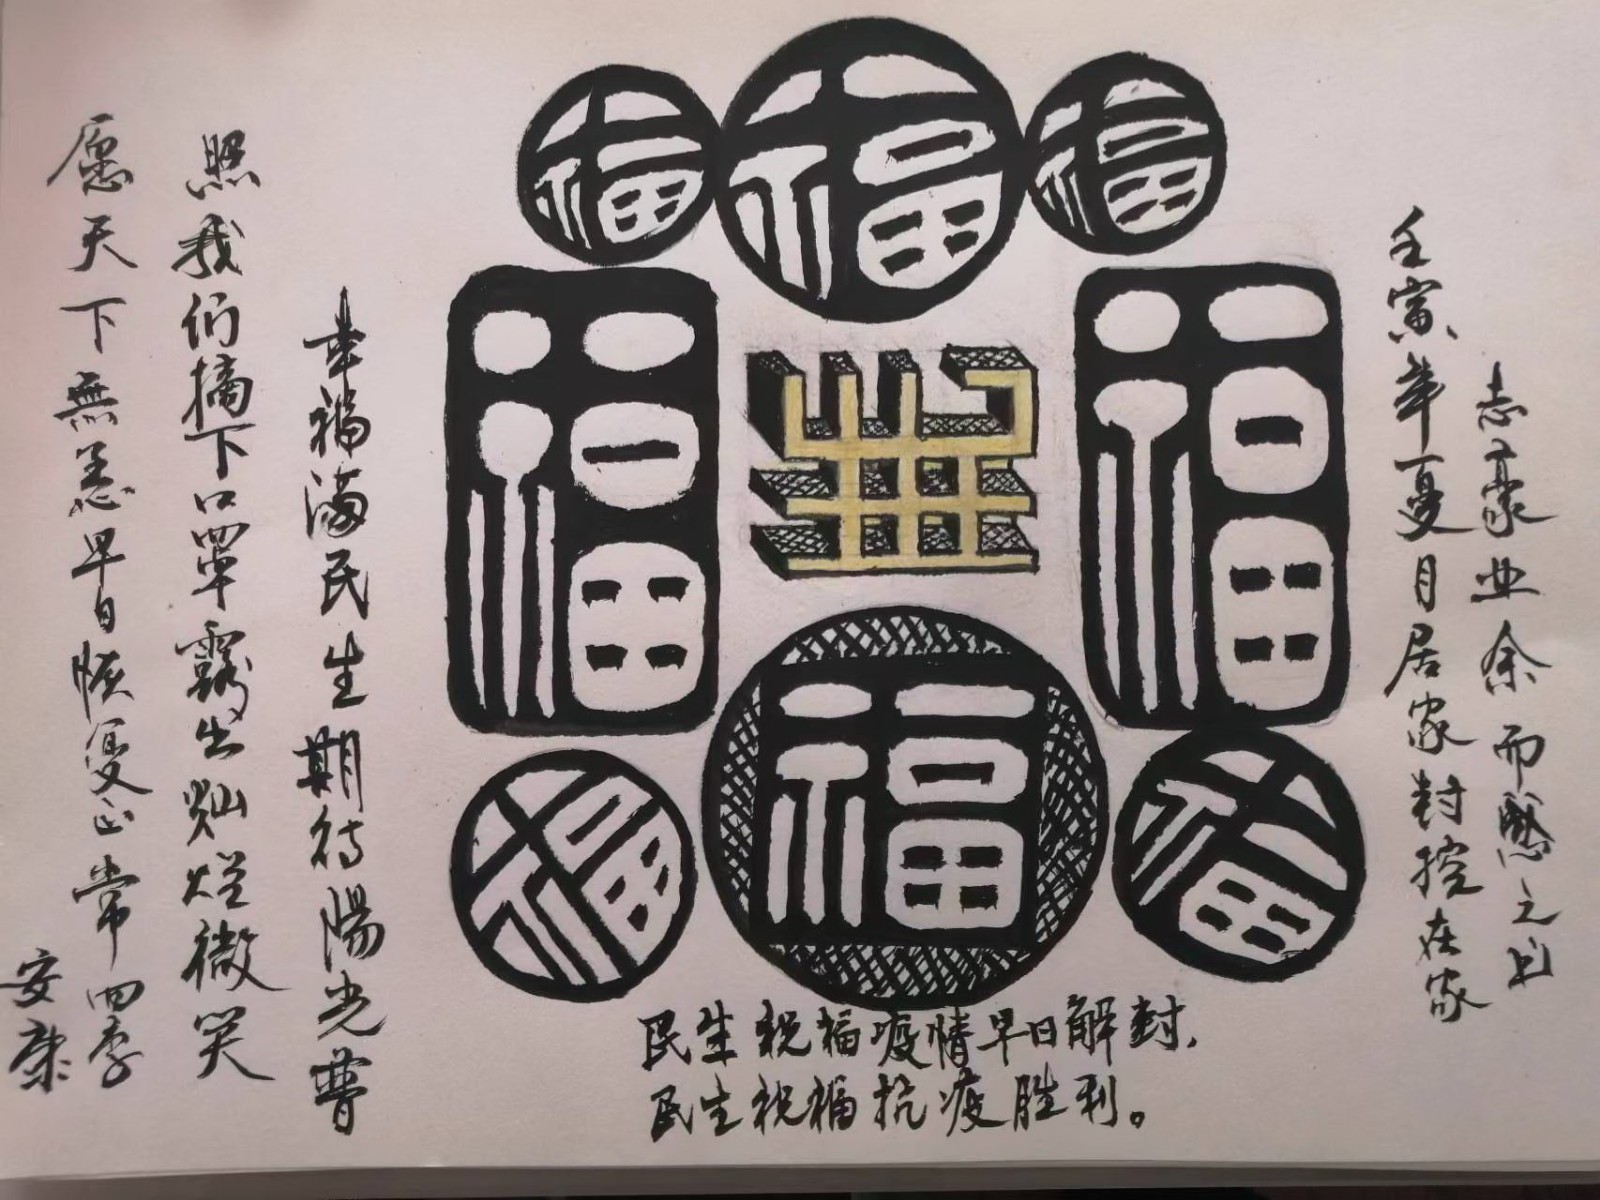 志豪业余而感之曰
壬寅年夏月居家封控在家
福
福
福
福
福
福
福
福
民生祝福疫情早日解封，
民生祝福抗疫胜利。
幸福满民生期待陽光普
照我们摘下口罩露出灿烂微笑
愿天下無恙早日恢复正常四季
安康